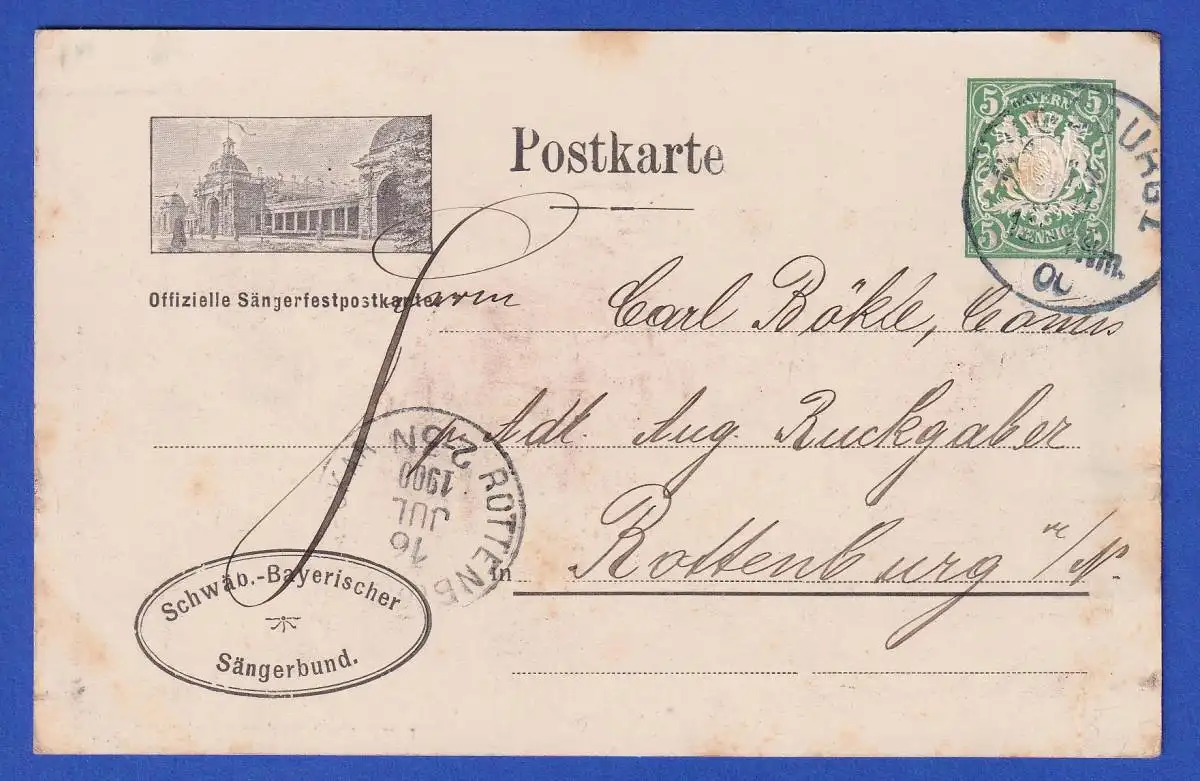 Postkarte
5 BAYERN 5
5 PFENNIG 5
BURG 1
Nm.
00
Offizielle Sängerfestpostkarte.
Herrn Carl Bökle, Comis
p. Adr. Aug. Ruckgaber
in Rottenburg a/N.
ROTTENB
16
JUL
1900
Schwäb.-Bayerischer
Sängerbund.